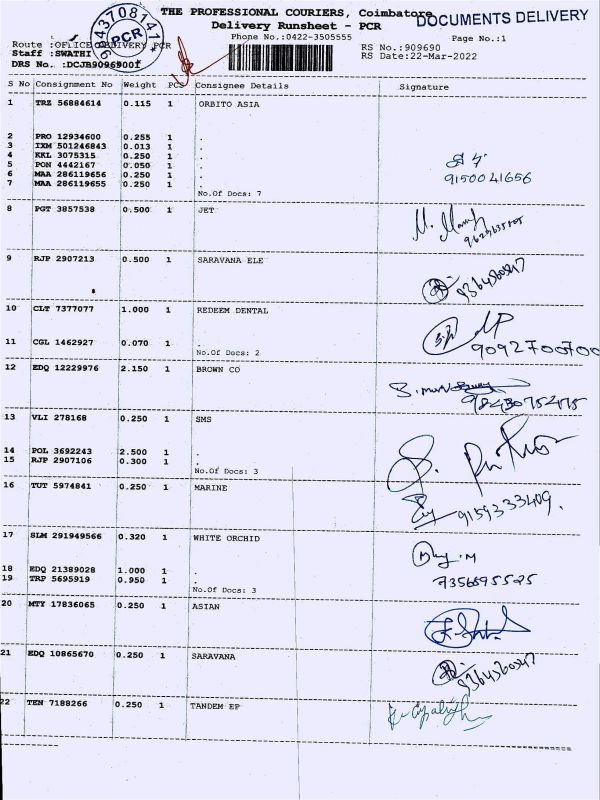 THE PROFESSIONAL COURIERS, Coimbatore
DOCUMENTS DELIVERY
Delivery Runsheet - PCR
Phone No.:0422-3505555 Page No.:1
Route :OFFICE DELIVERY PCR RS No.:909690
Staff :SWATHI RS Date:22-Mar-2022
DRS No. :DCJB9096900I
PCR
S No Consignment No Weight PCS Consignee Details Signature
1 TRZ 56884614 0.115 1 ORBITO ASIA
2 PRO 12934600 0.255 1 .
3 IXM 501246843 0.013 1 .
4 KKL 3075315 0.250 1 .
5 PON 4442167 0.050 1 .
6 MAA 286119656 0.250 1 .
7 MAA 286119655 0.250 1 .
9150041656
No.Of Docs: 7
8 PGT 3857538 0.500 1 JET
9 RJP 2907213 0.500 1 SARAVANA ELE
10 CLT 7377077 1.000 1 REDEEM DENTAL
11 CGL 1462927 0.070 1 .
9092700700
No.Of Docs: 2
12 EDQ 12229976 2.150 1 BROWN CO
13 VLI 278168 0.250 1 SMS
14 POL 3692243 2.500 1 .
15 RJP 2907106 0.300 1 .
No.Of Docs: 3
16 TUT 5974841 0.250 1 MARINE
9159333409.
17 SLM 291949566 0.320 1 WHITE ORCHID
18 EDQ 21389028 1.000 1 .
19 TRP 5695919 0.950 1 .
No.Of Docs: 3
20 MTY 17836065 0.250 1 ASIAN
21 EDQ 10865670 0.250 1 SARAVANA
22 TEN 7188266 0.250 1 TANDEM EP